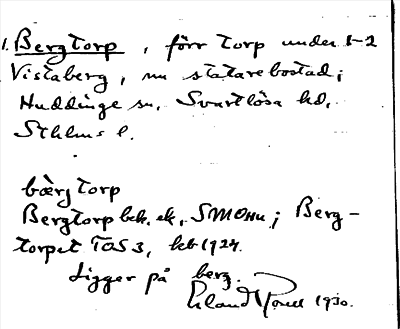 1. Bergtorp, förr torp under 1-2
Vistaberg, nu statarebostad i
Huddinge sn, Svartlösa hd,
Sthlms l.
bærjtorp
Bergtorp bek. ek, SMOHu; Berg-
torpet TOS 3, hkb 1924.
Ligger på berg.
Erland 1930.